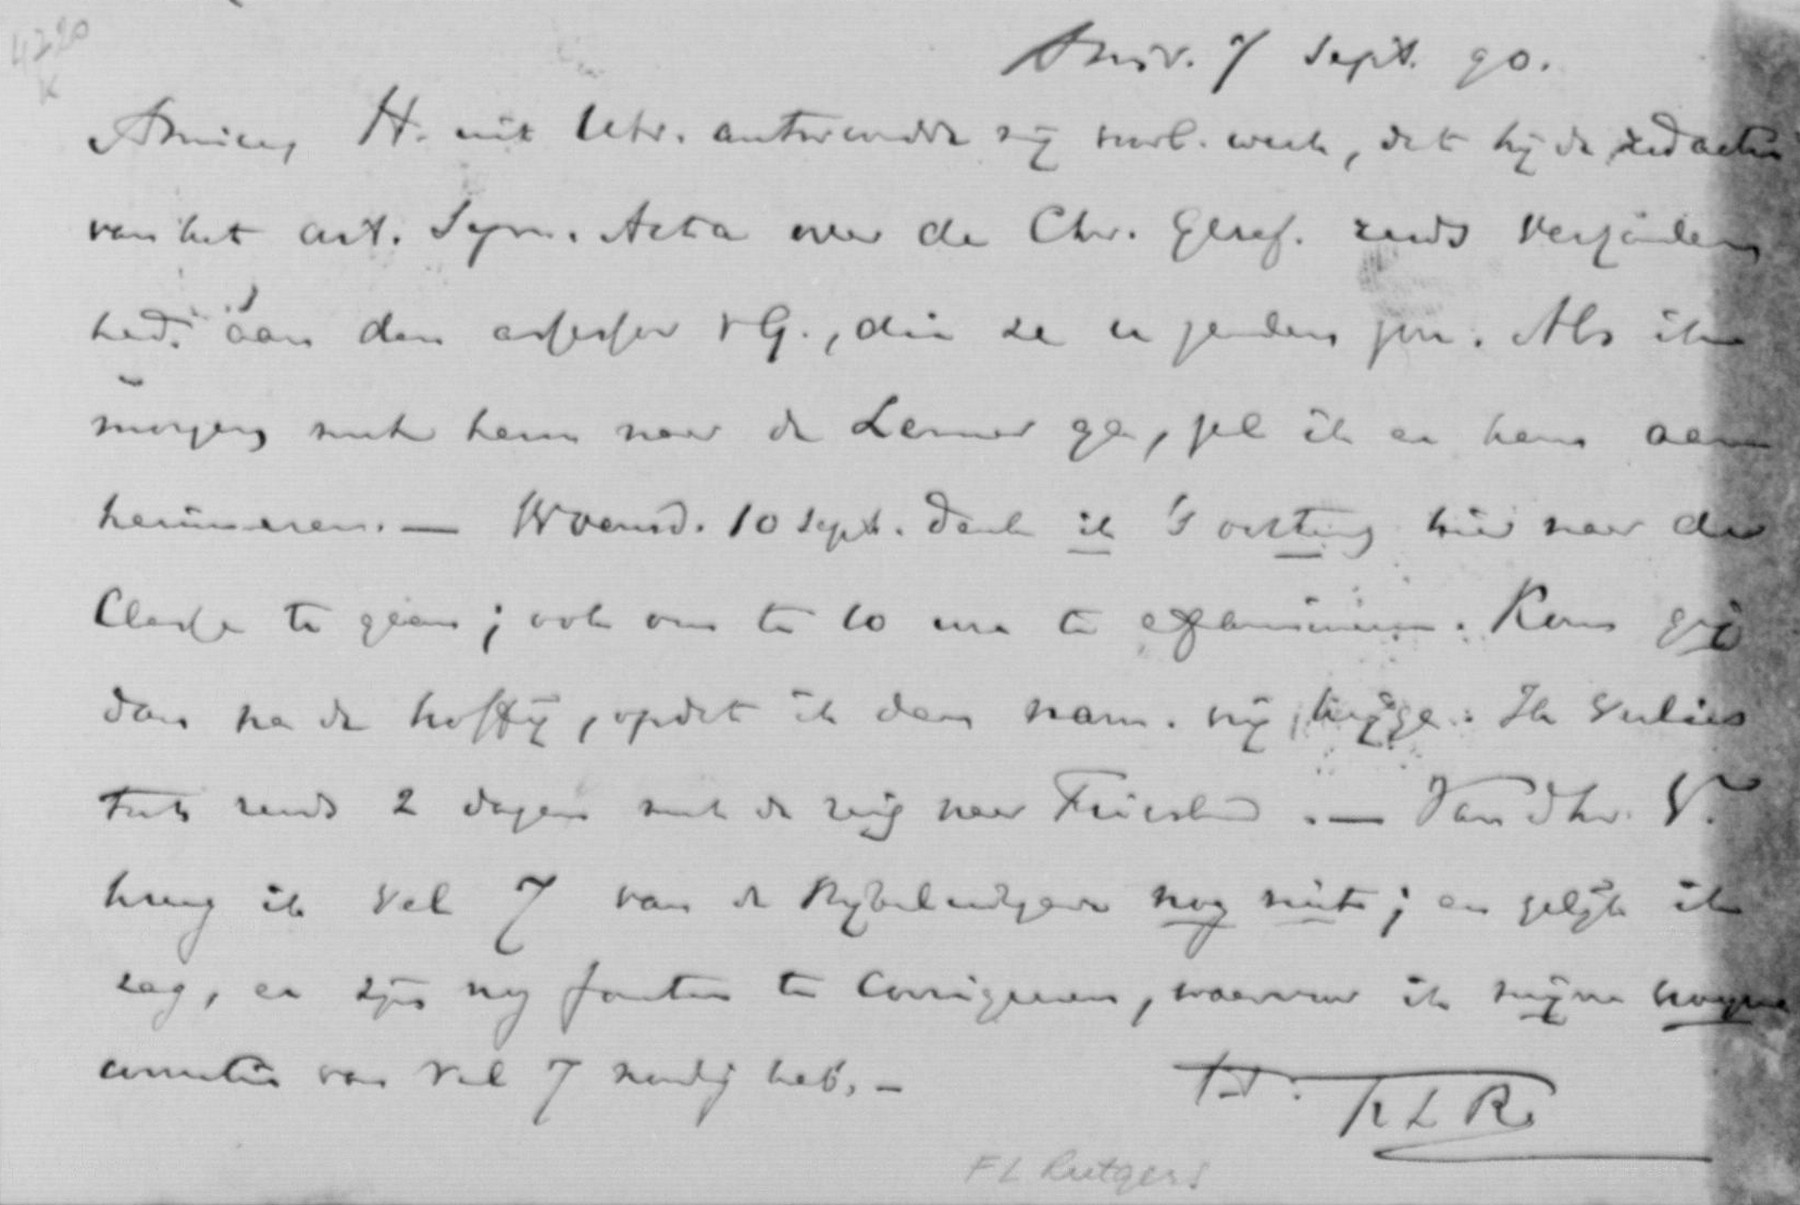 4220
K
Amst. 7 Sept. 90.
Amice, H. uit Utr. antwoordde mij voorl. week, dat hij de redactie
van het art. Syn. Acta over de Chr. Geref. reeds verzonden
had aan den assessor v G., die ze u zenden zou. Als ik
morgen met hem naar de Lemmer ga, zal ik er hem aan
herinneren. — Woensd. 10 Sept. denk ik 's hier naar de
Classe te gaan; ook om te 10 ure te examineren. Kom gij
dan na de koffij, opdat ik dan nam. vrij krijge. Ik verlies
toch reeds 2 dagen met de reis naar Friesland. — Van dhr. V.
kreeg ik vel 7 van de Bijbeluitgave nog niet; en gelijk ik
zag, er zijn nog fouten te corrigeeren, waarvoor ik mijne
correctie van vel 7 noodig heb. —
tt. FLR.
FL Rutgers